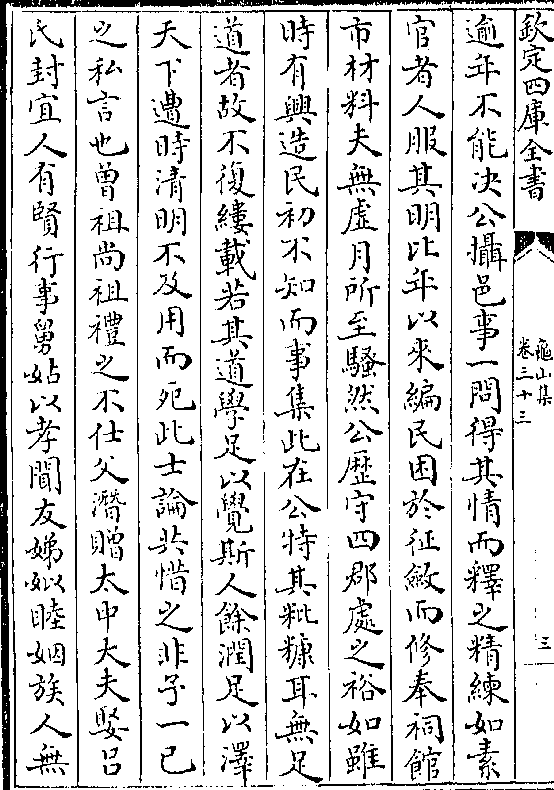 欽定四庫全書
龜山集
卷三十三
三
逾年不能决公攝邑事一問得其情而釋之精練如素
官者人服其明比年以來編民困於征斂而修奉祠館
市材料夫無虛月所至騷然公歷守四郡處之裕如雖
時有興造民初不知而事集此在公特其粃糠耳無足
道者故不復縷載若其道學足以覺斯人餘潤足以澤
天下遭時清明不及用而死此士論共惜之非予一已
之私言也曾祖尚祖禮之不仕父潛贈太中大夫娶吕
氏封宜人有賢行事舅姑以孝聞友娣姒睦姻族人無